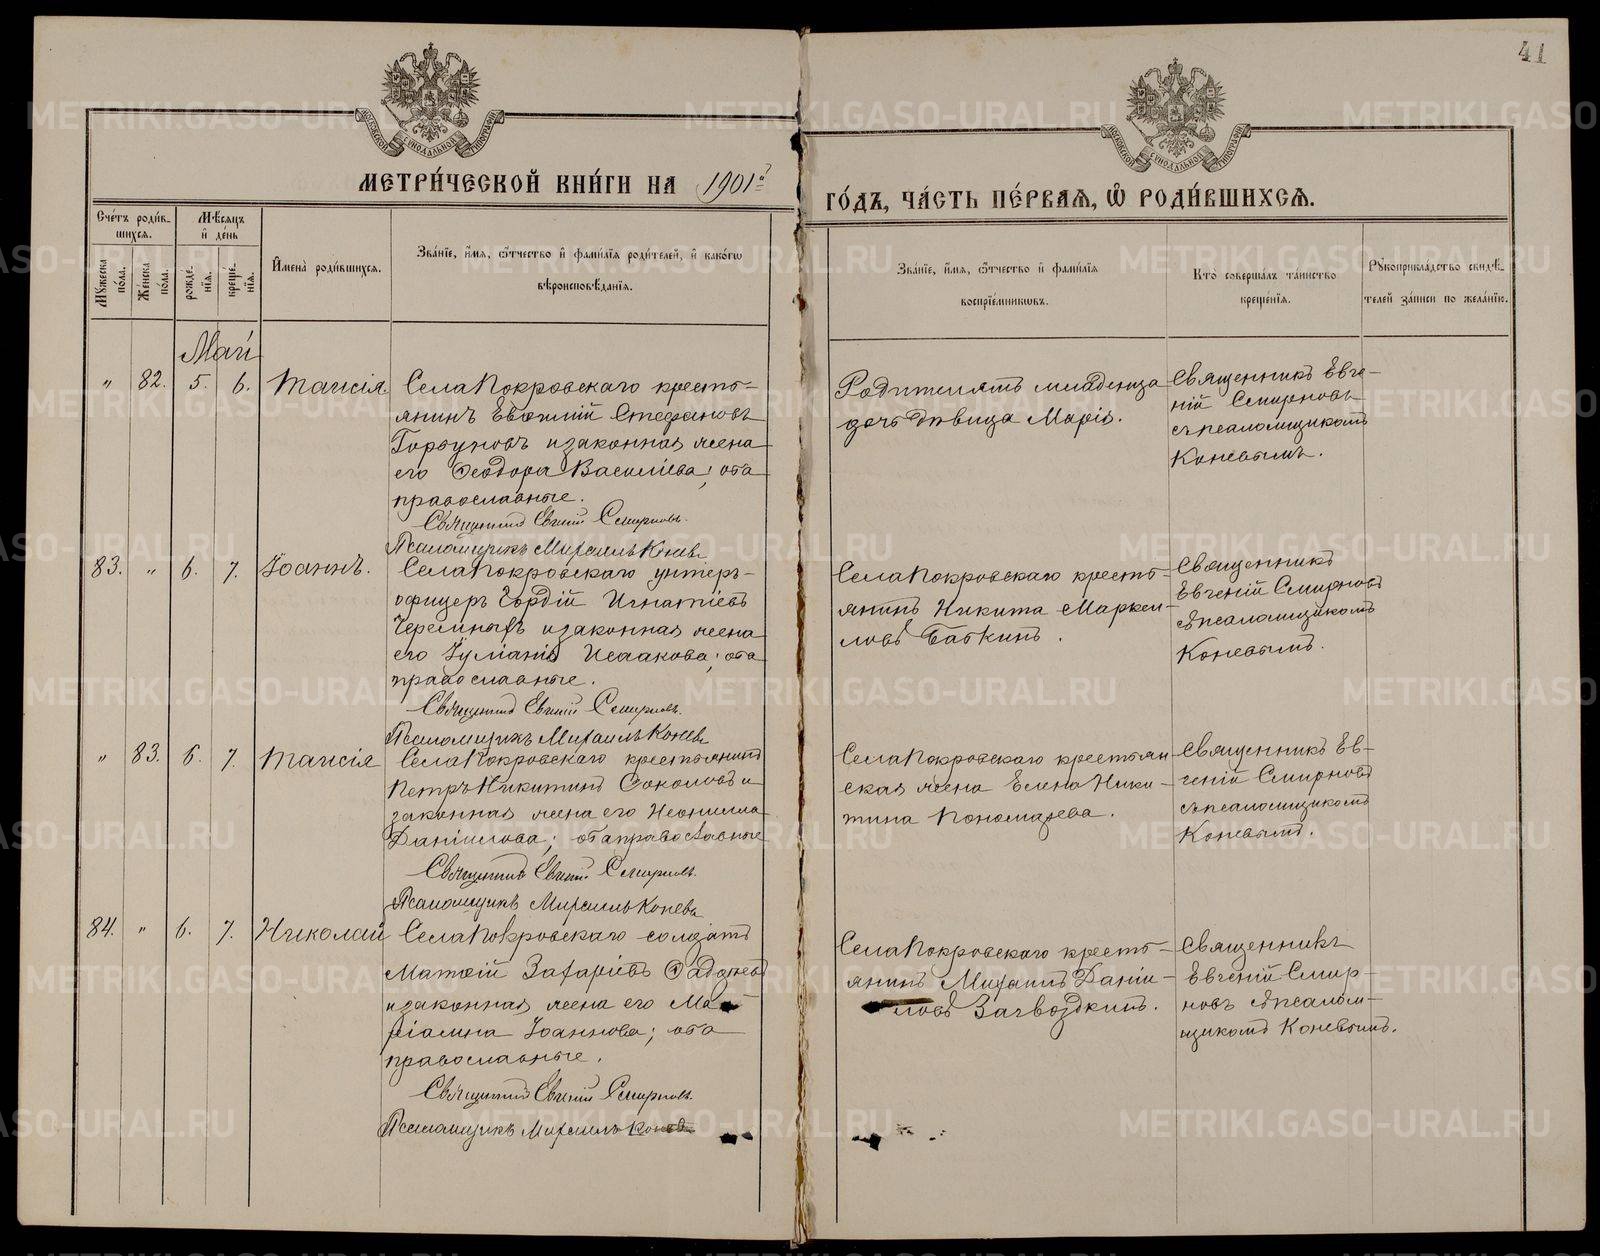 41
МОСКОВСКОЙ СѴНОДАЛЬНОЙ ТИПОГРАФІИ
МОСКОВСКОЙ СѴНОДАЛЬНОЙ ТИПОГРАФІИ
МЕТРИ́ЧЕСКОЙ КНИ́ГИ НА 1901й
ГО́ДЪ, ЧА́СТЬ ПЕ́РВАѦ, Ѽ РОДИ́ВШИХСѦ.
Сче́тъ роди́в-
шихсѧ.
Мꙋжеска по́ла.
Же́нска по́ла.
Мѣ́сѧцъ
и҆ де́нь
рожде́-
нїѧ.
креще́-
нїѧ.
И҆мена̀ роди́вшихсѧ.
Зва́нїе, и҆́мѧ, ѻ҆́тчество и҆ фами́лїѧ роди́телей, и҆ како́гѡ
вѣроисповѣ́данїѧ.
Зва́нїе, и҆́мѧ, ѻ҆́тчество и҆ фами́лїѧ
воспрїе́мникѡвъ.
Кто̀ соверша́лъ та́инство
креще́нїѧ.
Рꙋкоприкла́дство свидѣ́-
телей за́писи по жела́нїю.
Май
" 82. 5. 6. Таисія
Села Покровскаго кресть=
янинъ Евѳимій Стефановъ
Горбуновъ и законная жена
его Ѳеодора Василіева; оба
православные.
Священникъ Евгеній Смирновъ.
Псаломщикъ Михаилъ Коневъ
Родителямъ младенца
дочь дѣвица Марія.
Священникъ Евге-
ній Смирновъ
съ псаломщикомъ
Коневымъ.
83. " 6. 7. Іоаннъ.
Села Покровскаго унтеръ-
офицеръ Гордій Игнатіевъ
Черемныхъ и законная жена
его Іуліанія Исаакова; оба
православные.
Священникъ Евгеній Смирновъ.
Псаломщикъ Михаилъ Коневъ
Села Покровскаго кресть-
янинъ Никита Маркел-
ловъ Бабкинъ.
Священникъ
Евгеній Смирновъ
съ псаломщикомъ
Коневымъ.
" 83. 6. 7. Таисія
Села Покровскаго крестьянинъ
Петръ Никитинъ Соколовъ и
законная жена его Неонилла
Даніилова; оба православные
Священникъ Евгеній Смирновъ.
Псаломщикъ Михаилъ Коневъ
Села Покровскаго крестьян
ская жена Елена Ники-
тина Пономарева.
Священникъ Ев-
геній Смирновъ
съ псаломщикомъ
Коневымъ.
84. " 6. 7. Николай
Села Покровскаго солдатъ
Матѳій Захаріевъ
и законная жена его Ма-
ріамна Іоаннова; оба
православные.
Священникъ Евгеній Смирновъ.
Псаломщикъ Михаилъ Коневъ
Села Покровскаго кресть-
янинъ Михаилъ Даніи-
ловъ Загвоздкинъ.
Священникъ
Евгеній Смир-
новъ съ псалом-
щикомъ Коневымъ.
METRIKI.GASO-URAL.RU